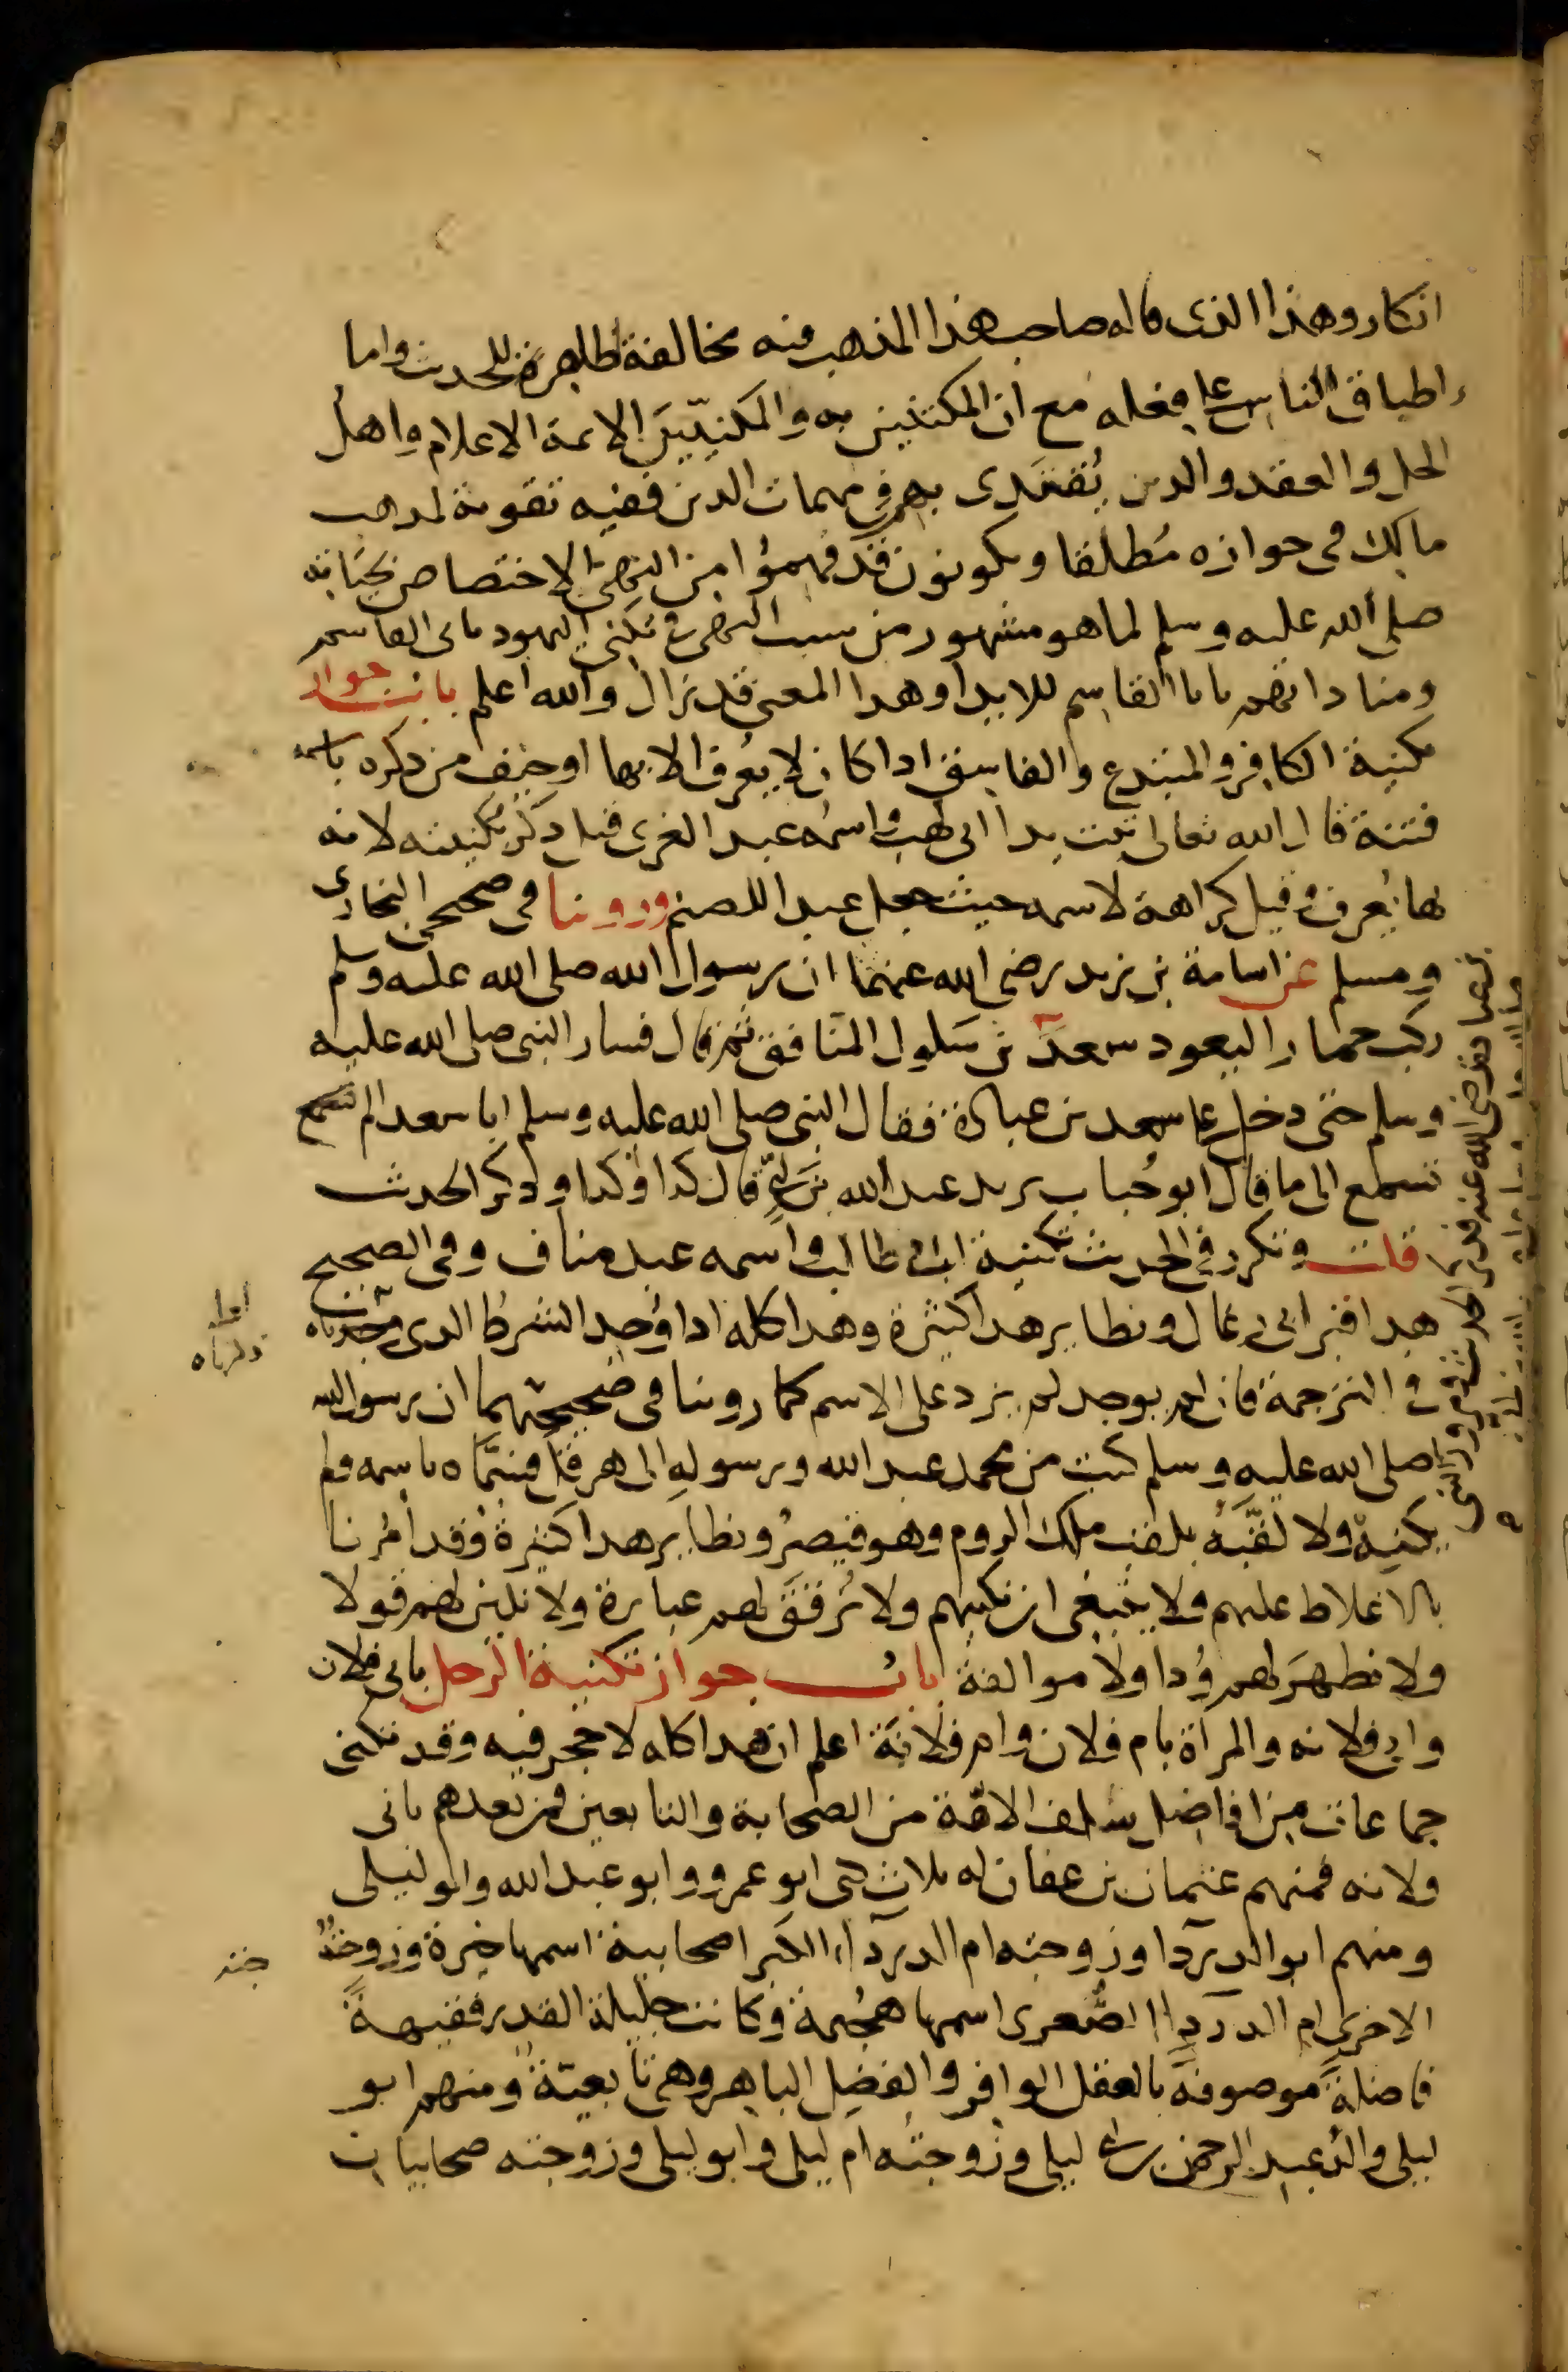 انكار وهذا الذى قاله صاحب هذا المذهب فيه مخالفة ظاهرة للحديث واما
اطباق الناس على فعله مع ان المكتنين به والمكنيين الائمة الاعلام واهل
الحل والعقد والدين يُقتدى بهم فى مهمات الدين ففيه تقوية لمذهب
مالك فى جوازه مُطلقا ويكونون قد فهموا من النهى الاختصاص بحياته
صلى الله عليه وسلم لما هو مشهور من سبب النهى فى تكنى اليهود بابى القاسم
ومناداتهم يابا القاسم للايذا وهدا المعنى قد زال والله اعلم باب جواز
تكنية الكافر والمبتدع والفاسق ادا كان لا يعرف الا بها او خيف من ذكره باسمه
فتنة قال الله تعالى تبت يدا ابى لهب واسمه عبد العزى قيل ذكر بكنيته لانه
بها يُعرف وقيل كراهة لاسمه حيث جعل عبدا للصنم وروينا فى صحيحى البخارى
ومسلم عن اسامة بن زيد رضى الله عنهما ان رسول الله صلى الله عليه وسلم
ركب حمارا ليعود سعد بن سَلول المنافق ثم قال فسار النبى صلى الله عليه
وسلم حتى دخل على سعد بن عبادة فقال النبى صلى الله عليه وسلم ايا سعد الم
تسمع الى ما قال ابو حُباب يريد عبد الله بن ابىّ قال كدا وكدا ودكر الحديث
قلت وتكرر فى الحديث تكنية ابى طالب واسمه عبد مناف وفى الصحيح
هدا قبر ابى رغال ونظاير هدا كثيرة وهدا كله ادا وُجد الشرط الدى
فى الترجمة فان لم يوجد لم يزد على الاسم كما روينا فى صحيحيهما ان رسول الله
صلى الله عليه وسلم كتب من محمد عبد الله ورسوله الى هرقل فسمّاه باسمه ولم
يكنيه ولا لقّبَه بلقب ملك الروم وهو قيصرُ ونظاير هدا كثيرة وقد اُمرنا
بالاغلاط عليهم ولا ينبغى ان نكنيهم ولا نُرقق لهم عبارة ولا نلين لهم قولا
ولا نظهرَ لهم وُدا ولا موالفة باب جواز تكنية الرجل بابى فلان
وابى فلانه والمرأة بام فلان وام فلانة اعلم ان هدا كله لا حجر فيه وقد تكنى
جماعات من افاضل سلف الامّة من الصحابة والتابعين فمن بعدهم بابى
فلانه فمنهم عثمان بن عفان له ثلاث كنى ابو عمرو وابو عبد الله وابو ليلى
ومنهم ابو الدردا وزوجته ام الدرداء الكبرا صحابية اسمها خيرة وزوجته
الاخرى ام الدرداا الصُّغرى اسمها هُجيمة وكانت جليلة القدر فقيهةً
فاضلةً موصوفةً بالعقل الوافر والفضل الباهر وهى تابعيّة ومنهم ابو
ليلى والدُ عبد الرحمن بن ابى ليلى وزوجتُه ام ليلى وابو ليلى وزوجته صحابيان